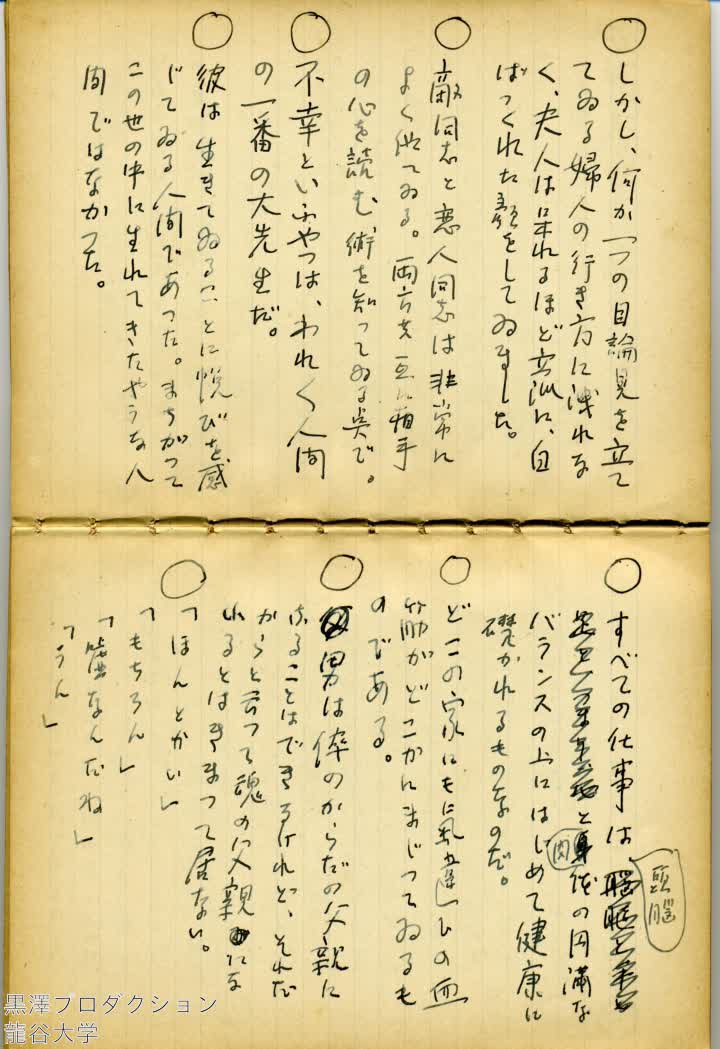 しかし、何か一つの目論見を立て
てゐる婦人の行き方に洩れな
く、夫人は呆れるほど立派に、自
ばつくれた顔をしてゐました。
敵同志と恋人同志は非常に
よく似てゐる。両方共互に相手
の心を読む術を知つてゐる点で。
不幸といふやつは、われ〱人間
の一番の大先生だ。
彼は生きてゐることに悦びを感
じてゐる人間であつた。まちがつて
この世の中に生れてきたやうな人
間ではなかつた。
すべての仕事は、頭脳
と肉体の円満な
バランスの上にはじめて健康に
礎かれるものなのだ。
どこの家にもに気違ひの血
筋がどこかにまじつてゐるも
のである。
男は倅のからだの父親に
なることはできるけれど、それだ
からと云つて魂の父親にな
れるとはきまつて居ない。
「ほんとかい」
「もちろん」
「嘘なんだね」
「うん」
黒澤プロダクション
龍谷大学